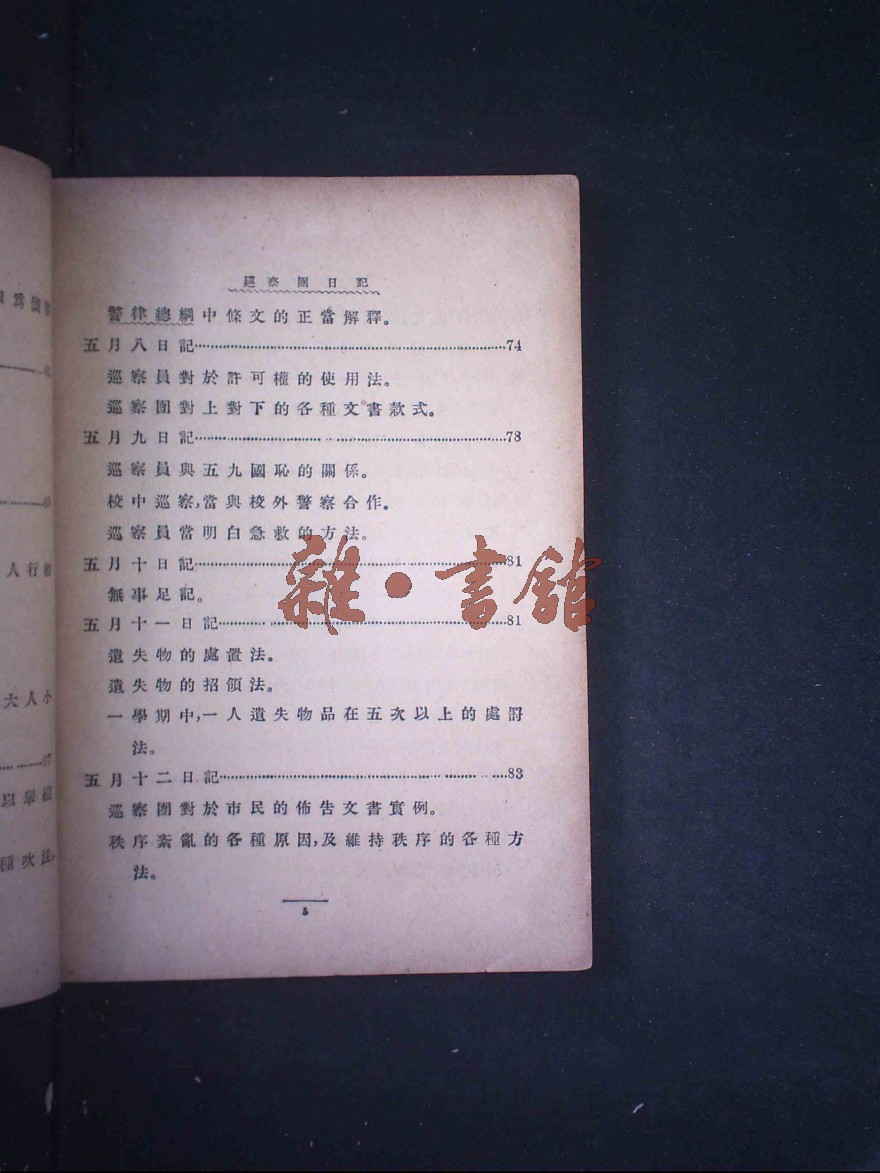 巡察團日記
警律總綱中條文的正當解釋。
五月八日記……74
巡察員對於許可權的使用法。
巡察團對上對下的各種文書款式。
五月九日記……78
巡察員與五九國恥的關係。
校中巡察,當與校外警察合作。
巡察員當明白急救的方法。
五月十日記……81
無事足記。
五月十一日記……81
遺失物的處置法。
遺失物的招領法。
一學期中,一人遺失物品在五次以上的處罰
法。
五月十二日記……83
巡察團對於市民的佈告文書實例。
秩序紊亂的各種原因,及維持秩序的各種方
法。
5
雜·書館